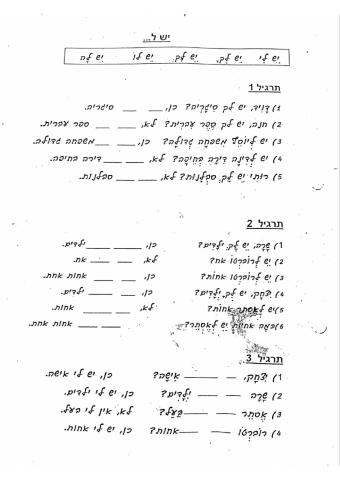 יש ל...
יֵש לִי יֵש לְךָ יֵש לָךְ יֵש לוֹ יֵש לָה
תרגיל 1
1) דָוִד, יש לְךָ סִיגָריה? כן, ___ ___ סיגריה.
2) חנה, יש לָךְ סֵפֶר עִברית? לא, ___ ___ ספר עברית.
3) יש ליוסף משפחה גדולה? כן, ___ ___ משפחה גדולה.
4) יש לדינה דירה בְּחֵיפה? לא, ___ ___ דירה בחיפה.
5) רותי יש לָךְ סַבלָנוּת? לא, ___ ___ סבלנות.
תרגיל 2
1) שָׂרָה, יֵש לָךְ יְלָדים? כן, ___ ___ ילדים.
2) יֵש לְרוֹבֶּרטוֹ אח? לא, ___ ___ אח.
3) יֵש לְרוֹבֶּרטוֹ אחוֹת? כן, ___ ___ אחות אחת.
4) יִצחָק, יֵש לְךָ יְלָדים? כן, ___ ___ ילדים.
5) יש לְאֶסתֵר אחוֹת? לא, ___ ___ אחות.
6) כּמה אחיות יֵש לְאֶסתֵר? ___ ___ אחות אחת.
תרגיל 3
1) יִצחָק, ___ ___ אִישָה? כן, יש לי אישה.
2) שָׂרָה ___ ___ יְלָדים? כן, יש לי ילדים.
3) אֶסתֵר ___ ___ בַּעַל? לא, אין לי בעל.
4) רוֹבֶּרטוֹ ___ ___ אחות? כן, יש לי אחות.